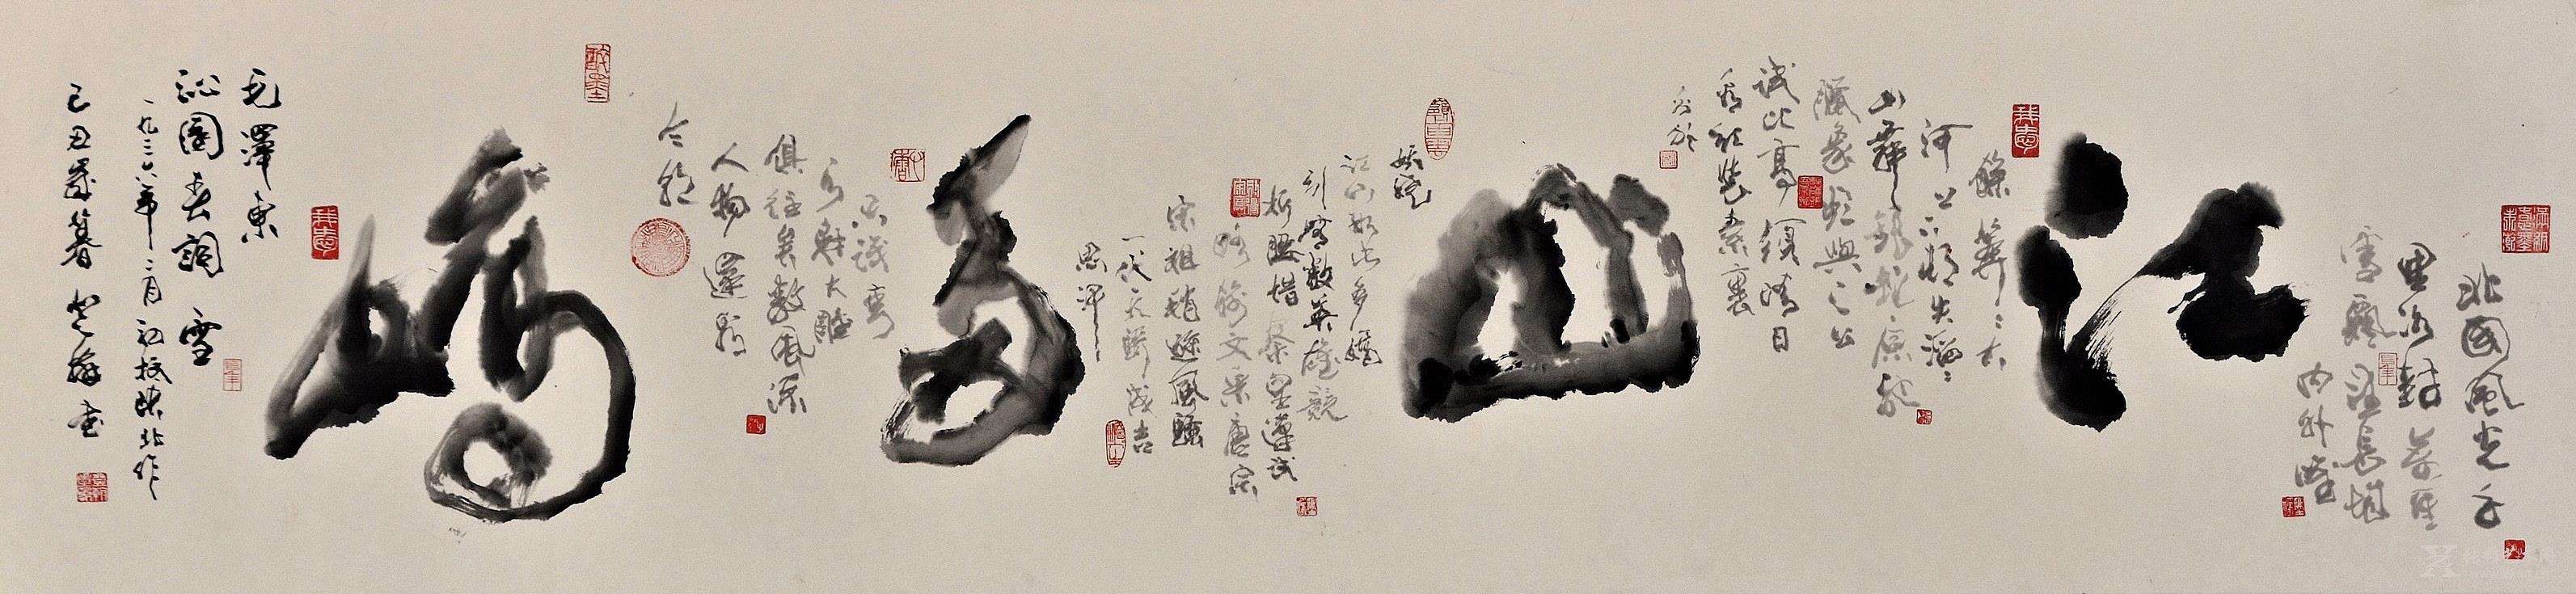 北國風光千
里冰封萬里
雪飄望長城
內外
江
餘莽莽大
河上下頓失滔滔
山舞銀蛇原馳
蠟象欲與天公
試比高須晴日
看紅裝素裹
分外
山
妖嬈
江山如此多嬌
引無數英雄競
折腰惜秦皇漢武
略輸文采唐宗
宋祖稍遜風騷
一代天驕成吉
思汗
多
只識彎
弓射大雕
俱往矣數風流
人物還看
今朝
嬌
毛澤東
沁園春詞 雪
一九三六年二月初於陝北作
己丑歲暮 書